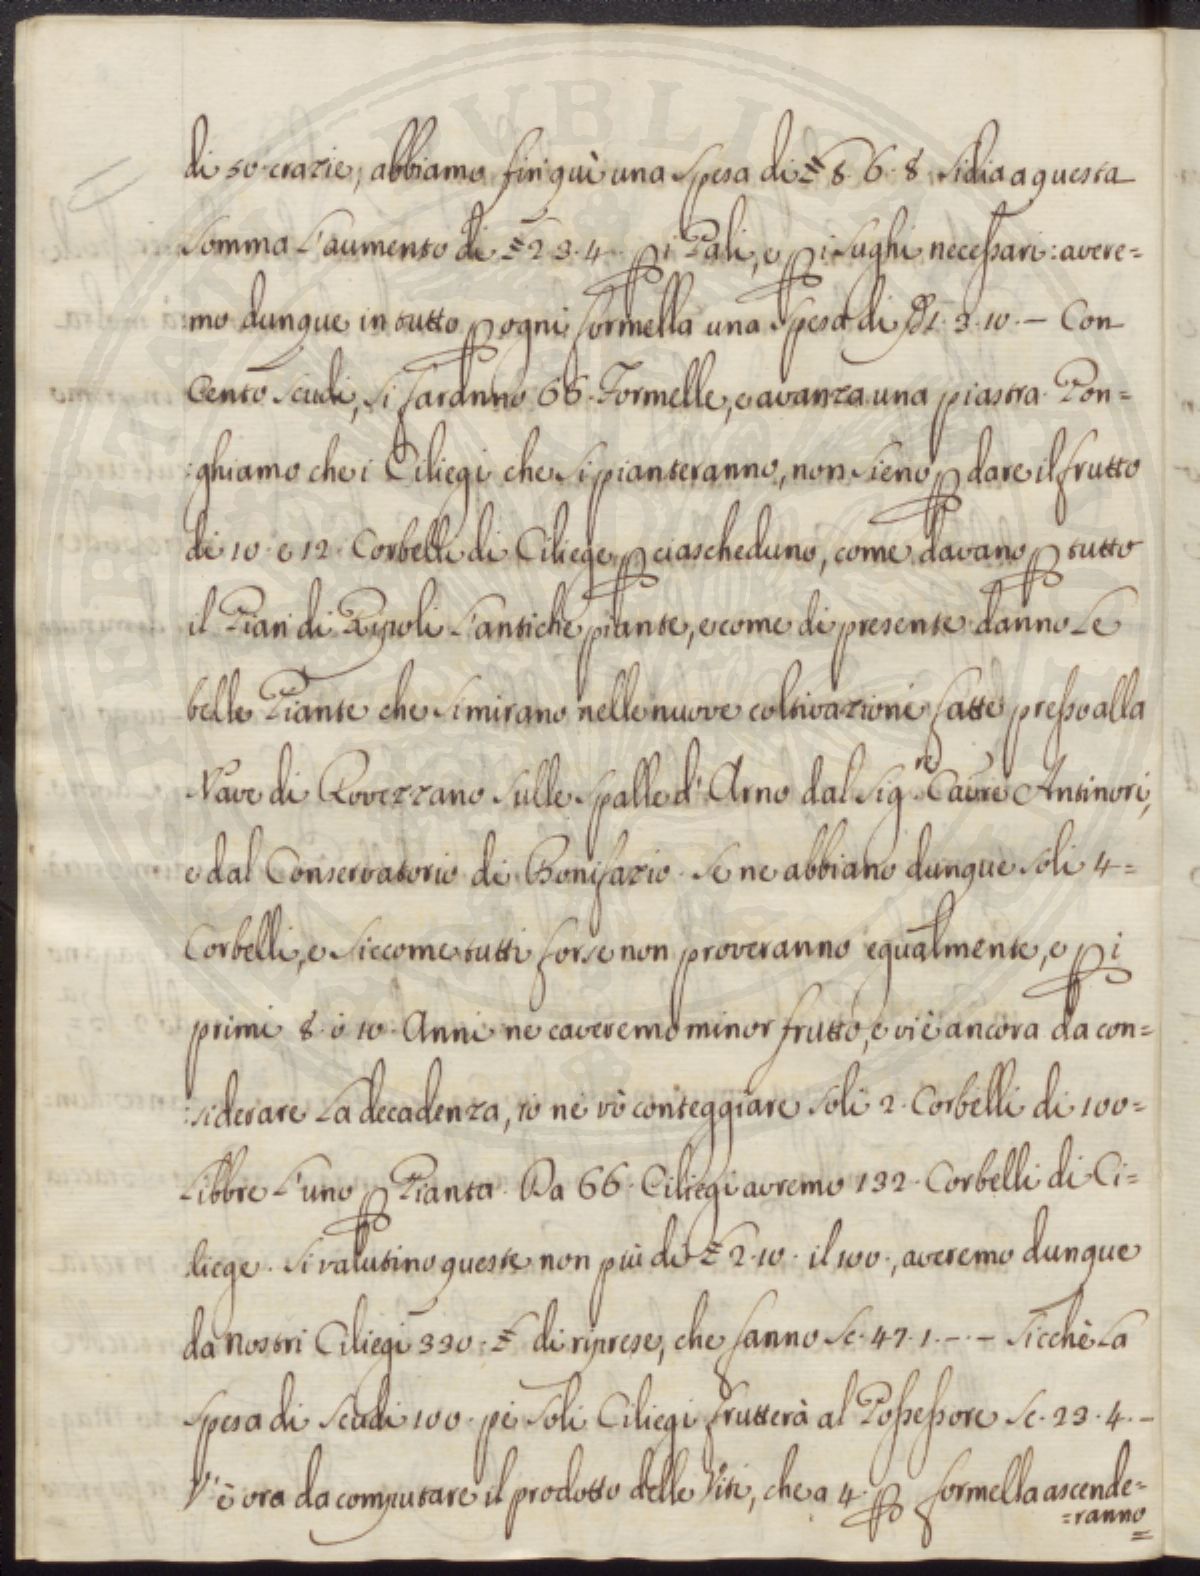 di 50 crazie, abbiamo fin quì una spesa di £ 8. 6. 8 si dia a questa
somma l'aumento di £ 2 3. 4. p i Pali, e p i sughi necessari: avere=
mo dunque in tutto p ogni formella una spesa di 1. 3. 10. — Con
Cento scudi, si faranno 66. Formelle, e avanza una piastra. Pon=
:ghiamo che i Ciliegi che si pianteranno, non sieno p dare il frutto
di 10 e 12. Corbelli di Ciliege p ciascheduno, come davano p tutto
il Pian di Ripoli l'antiche piante, e come di presente danno le
belle Piante che si mirano nelle nuove coltivazioni fatte presso alla
Nave di Rovezzano sulle spalle d'Arno dal Sig.re Cav:re Antinori,
e dal Conservatorio di Bonifazio. Se ne abbiano dunque soli 4=
Corbelli, e siccome tutti forse non proveranno egualmente, e p i
primi 8. ò 10. Anni ne caveremo minor frutto, e vi è ancora da con=
:siderare la decadenza, io ne vò conteggiare soli 2. Corbelli di 100=
libbre l'uno p Pianta. Da 66. Ciliegi avremo 132. Corbelli di Ci=
liege. Si valutino queste non più di £ 2. 10. il 100., averemo dunque
da nostri Ciliegi 330. £ di riprese, che fanno Sc. 47. 1. — . — Sicchè la
spesa di Scudi 100. pè soli Ciliegi frutterà al Possessore Sc. 23. 4. —
V'è ora da computare il prodotto delle Viti, che a 4. p formella ascende=
=ranno